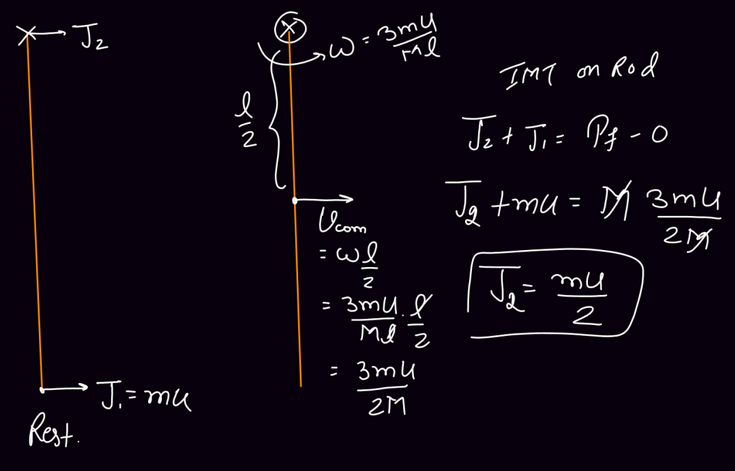 J₂
J₁ = mu
Rest.
ω = 3mu/Ml
l/2
Vcom
= ωl/2
= 3mu/Ml · l/2
= 3mu/2M
IMT on Rod
J₂ + J₁ = Pf - 0
J₂ + mu = M 3mu/2M
J₂ = mu/2